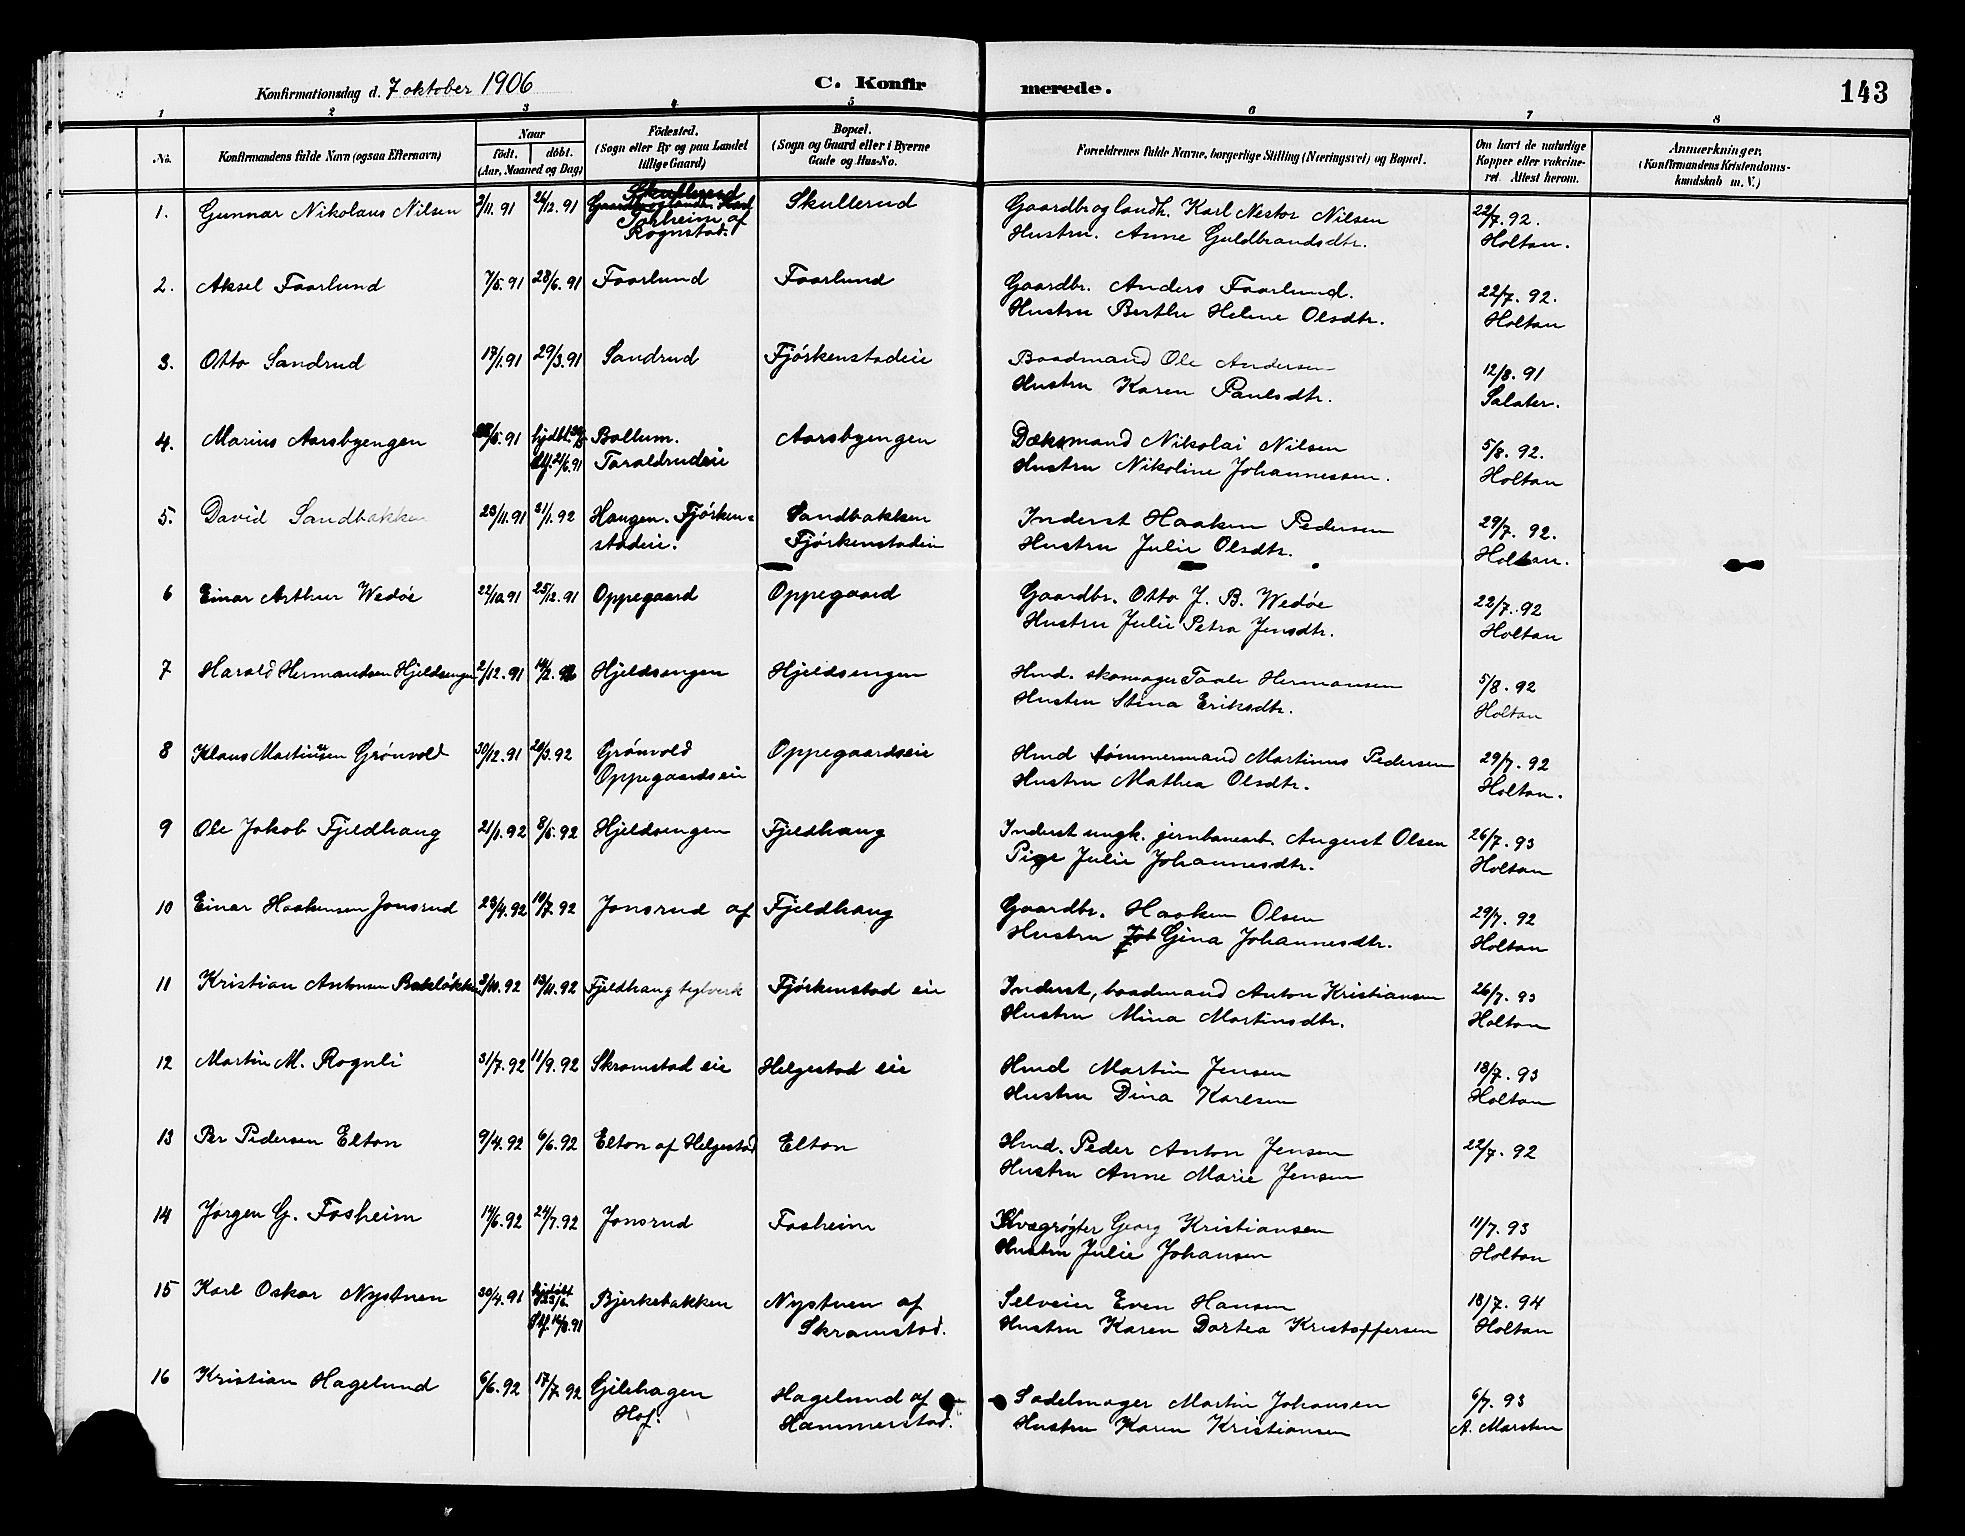 Konfirmationsdag d. 7 oktober 1906 C. Konfirmerede. 143
1 2 3 4 5 6 7 8
No. Konfirmandens fulde Navn (ogsaa Efternavn) Naar födt. döbt. (Aar, Maaned og Dag) Födested. (Sogn eller By og paa Landet tillige Gaard) Bopæl. (Sogn og Gaard eller i Byerne Gade og Hus-No. Forældrenes fulde Navne, borgerlige Stilling (Næringsvei) og Bopæl. Om havt de naturlige Kopper eller vakcineret. Attest herom. Anmærkninger, (Konfirmandens Kristendomskundskab m. V.)
1. Gunnar Nikolaus Nilsen 2/11.91 26/12.91 Skullerud Skullerud Gaardbr og landh. Karl Nestor Nilsen 22/7.92.
Rognstad. Hustru. Anne Guldbrandsdtr. Holtan.
2. Aksel Faarlund 7/5.91 28/6.91 Faarlund Faarlund Gaardbr. Anders Faarlund. 22/7.92.
Hustru Berthe Helene Olsdtr. Holtan
3. Otto Sandrud 17/1.91 29/3.91 Sandrud Fjörkenstadeie Baadmand Ole Andersen 12/8.91
Hustru Karen Paulsdtr. Salater.
4. Marius Aarsbyengen /5.91 hjdbt. Bollum. Aarsbyengen Dæksmand Nikolai Nilsen 5/8.92.
21/6.91 Taraldrudeie Hustru Nikoline Johannessen. Holtan
5. David Sandbakken 23/11.91 31/1.92 Haugen. Fjörken- Sandbakken Inderst Haaken Pedersen 29/7.92.
stadeie. Fjörkenstadeie Hustru Julie Olsdtr. Holtan.
6 Einar Arthur Wedöe 22/10.91 25/12.91 Oppegaard Oppegaard Gaardbr. Otto J. B. Wedöe 22/7.92
Hustru Julie Petra Jensdtr. Holtan
7 Harald Hermandsen Hjeldsengen 2/12.91 14/2. Hjeldsengen Hjeldsengen Hmd. skomager Taale Hermansen 5/8.92
Hustru Stina Eriksdtr. Holtan
8 Klaus Martinusen Grönvold 30/12.91 20/3.92 Grönvold Oppegaardseie Hmd tömmermand Martinus Pedersen 29/7.92
Oppegaardseie Hustru Mathea Olsdtr. Holtan.
9 Ole Jakob Fjeldhaug 21/1.92 8/5.92 Hjeldsengen Fjeldhaug Inderst ungk. jernbanearb. August Olsen 26/7.93
Pige Julie Johannesdtr. Holtan
10 Einar Haakensen Jonsrud 23/4.92 10/7.92 Jonsrud af Fjeldhaug Gaardbr. Haaken Olsen 29/7.92
Hustru Gina Johannesdtr. Holtan
11 Kristian Antonsen Bakløkken 3/10.92 13/11.92 Fjeldhaug teglverk Fjörkenstad eie Inderst, baadmand Anton Kristiansen 26/7.93
Hustru Mina Martinsdtr. Holtan
12 Martin M. Rognli 31/7.92 11/9.92 Skramstad eie Helgestad eie Hmd Martin Jensen 18/7.93
Hustru Dina Karlsen Holtan
13 Per Pedersen Elton 9/4.92 6/6.92 Elton af Helgestad Elton Hmd. Peder Anton Jensen 22/7.92
Hustru Anne Marie Jensen
14 Jørgen G. Fosheim 14/6.92 24/7.92 Jonsrud Fosheim Kvægrøgter Georg Kristiansen 11/7.93
Hustru Julie Johansen Holtan
15 Karl Oskar Nystuen 30/4.91 Bjerkebakken Nystuen af Selveier Even Hansen 18/7.94
Skramstad. Hustru Karen Dortea Kristoffersen Holtan
16 Kristian Hagelund 6/6.92 17/7.92 Gilehagen Hagelund af Sadelmager Martin Johansen 6/7.93
Hof. Hammerstad. Hustru Karen Kristiansen A. Marsten